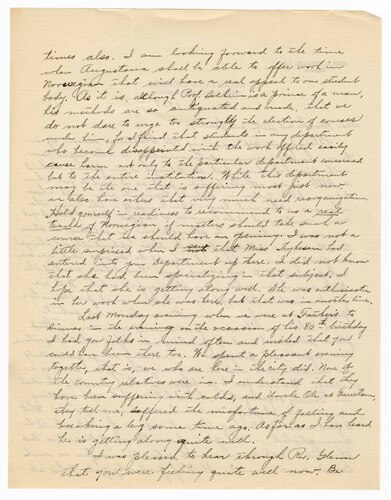 times also. I am looking forward to the time
when Augustana shall be able to offer work in
Norwegian that will have a real appeal to our student
body. As it is, although Prof. is a prince of a man,
his methods are so antiquated and crude, that we
do not dare to urge too strongly the election of courses
under him, for I find that students in any department
who become disappointed with the work offered easily
cause harm not only to the particular department concerned
but to the entire institution. While this department
may be the one that is suffering most just now
we also have others that very much need reorganization.
Hold yourself in readiness to recommend to us a real
teacher of Norwegian, if matters should take such a
course that we should have an opening. I was not a
little surprised when I that Miss had
entered into your Department up there. I did not know
that she had been specializing in that subject. I
hope that she is getting along well. She was enthusiastic
in her work when she was here, but that was in another line.
Last Monday evening when we were at Father's to
dinner in the evening on the occasion of his 80th birthday
I had you folks in mind often and wished that you
could have been there too. We spent a pleasant evening
together, that is, we who are here in the city did. None of
the country relatives were in. I understand that they
have been suffering with colds, and Uncle Ole at
they tell me, suffered the misfortune of falling and
breaking a leg some time ago. As far as I have heard
he is getting along quite well.
I was pleased to hear through Rev. Glenn
that you were feeling quite well now. Be